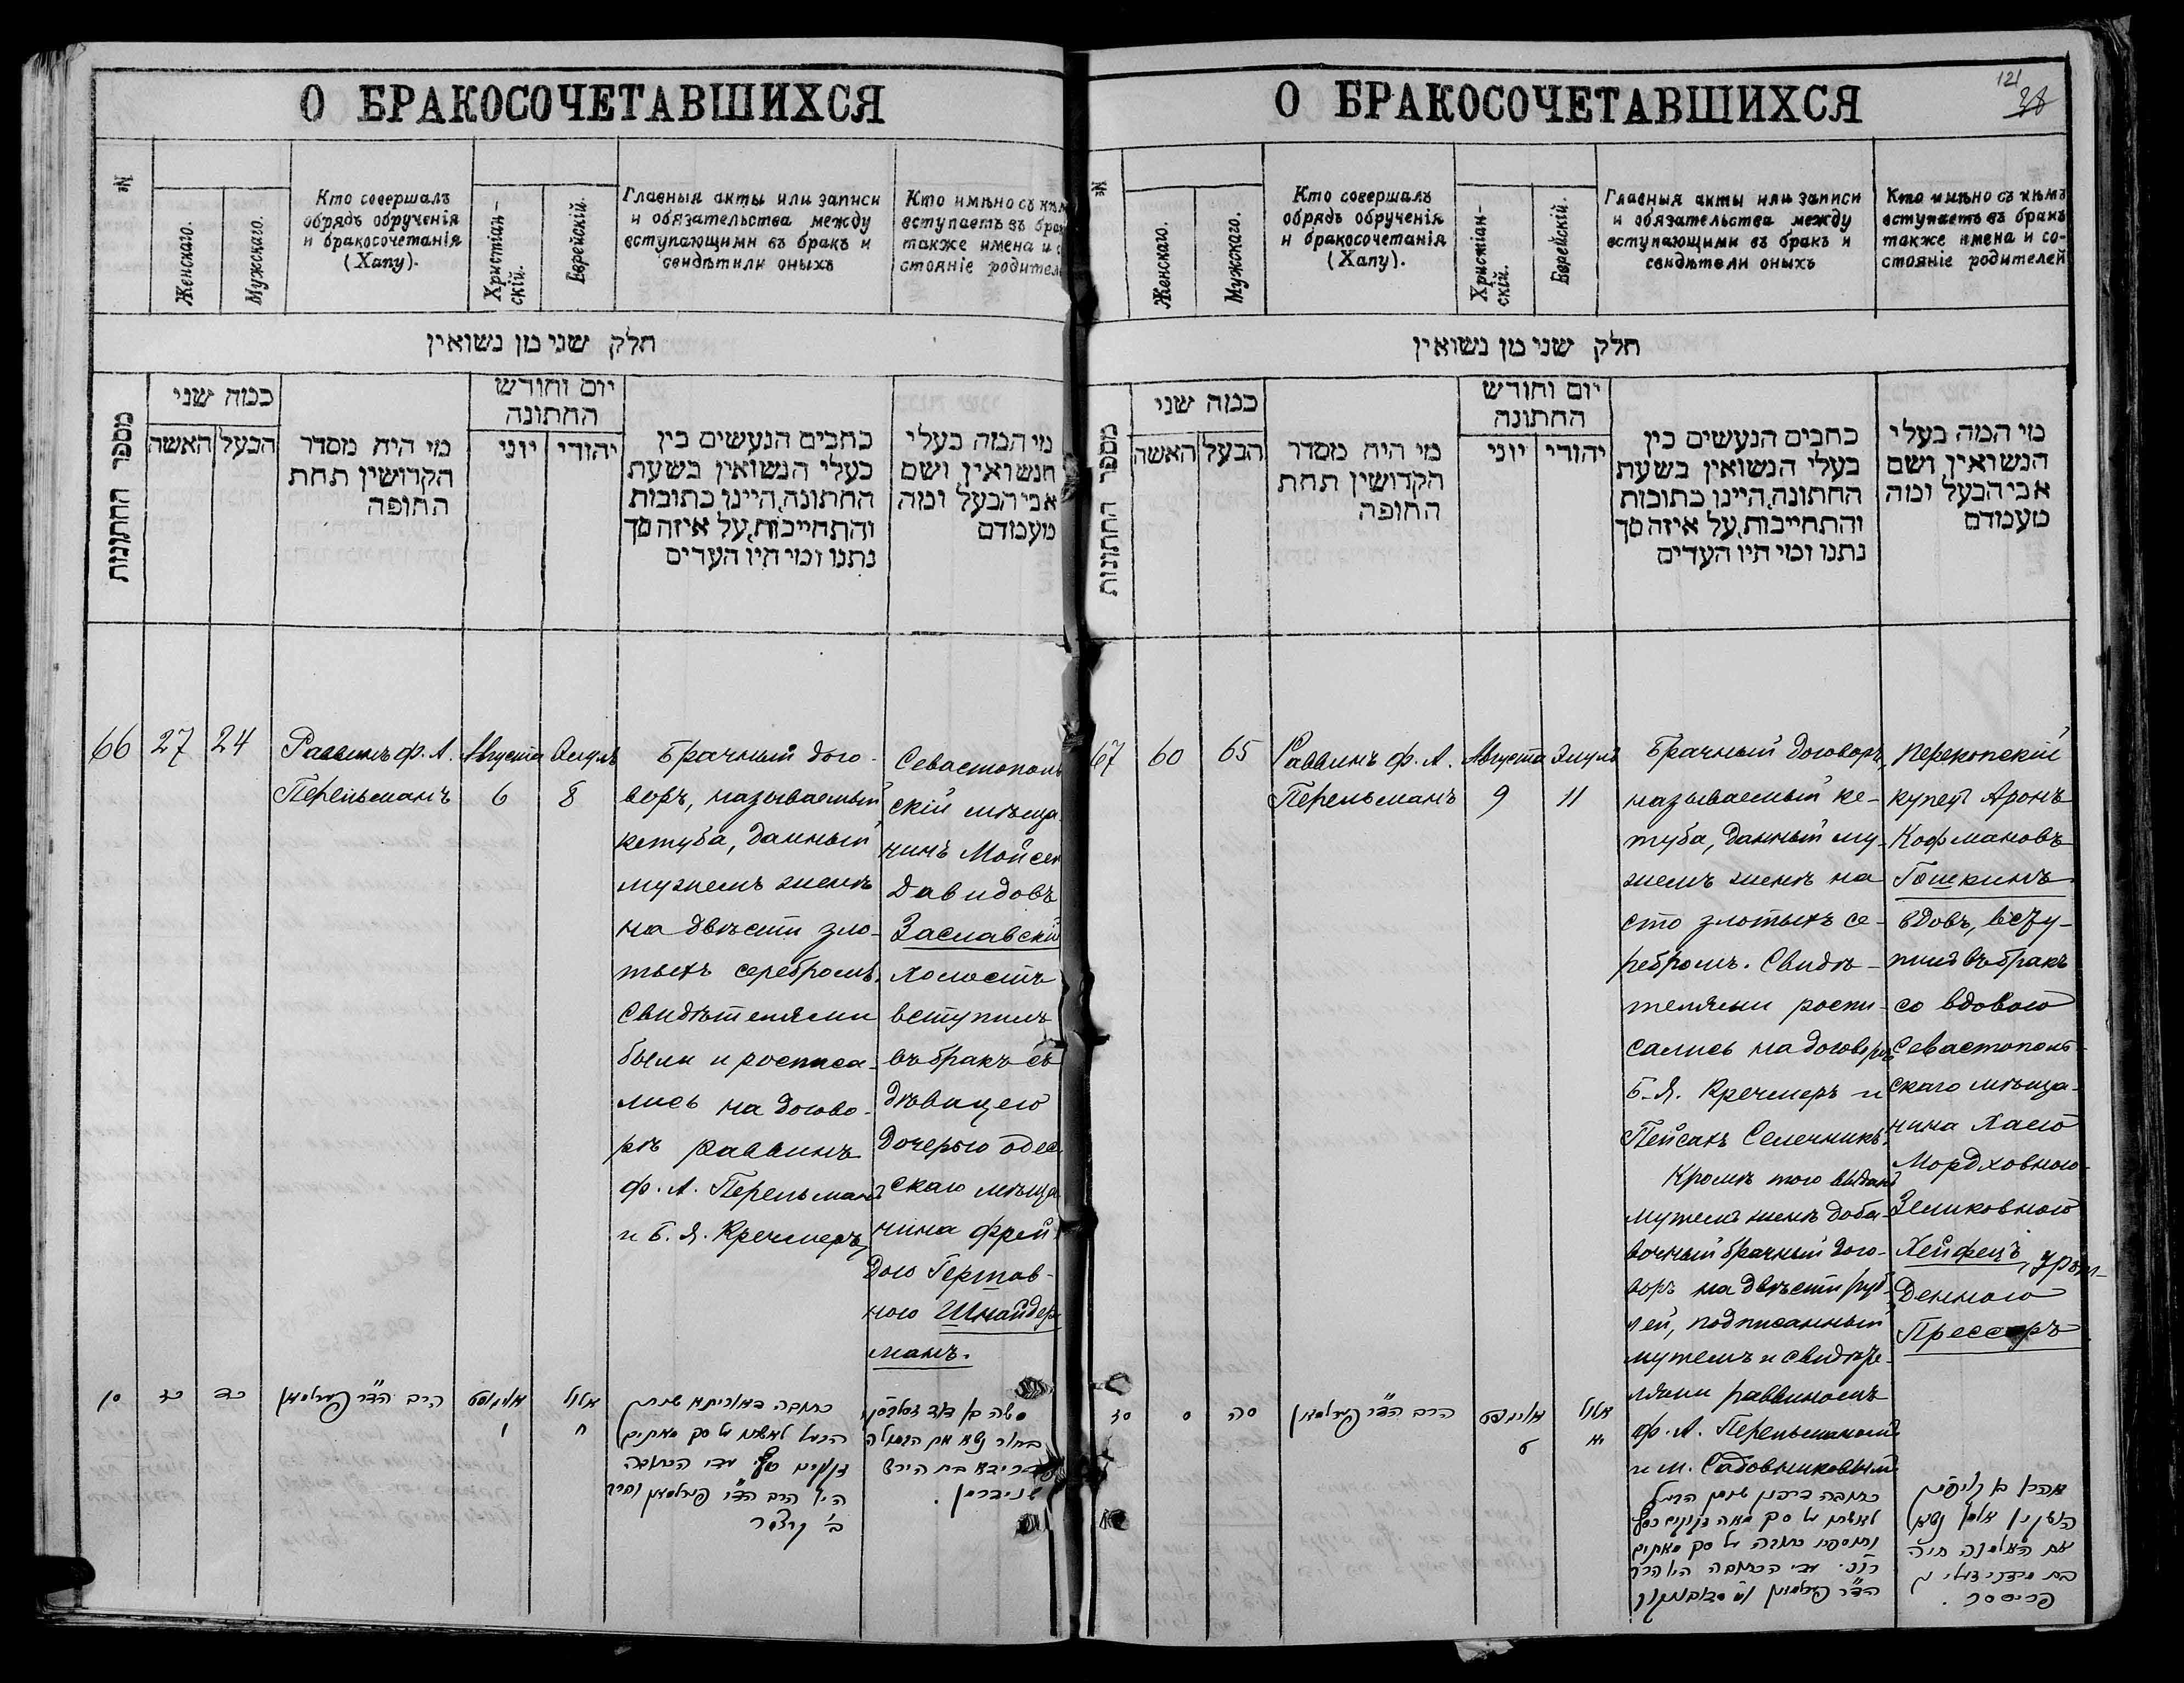 О БРАКОСОЧЕТАВШИХСЯ
№
Женскаго.
Мужскаго.
Кто совершалъ
обрядъ обрученія
и бракосочетанія
(Хапу).
Христіан-
скій.
Еврейскій.
Главныя акты или записи
и обязательства между
вступающими въ бракъ и
свидѣтили оныхъ
Кто имѣно съ кѣм
вступаетъ въ брак
также имена и с
стояніе родител
חלק שני מן נשואין
מספר החתונות
כמה שני
האשה
הבעל
מי היה מסדר
הקדושין תחת
החופה
יום וחודש
החתונה
יוני
יהודי
כתבים הנעשים בין
בעלי הנשואין בשעת
החתונה, היינו כתובות
והתחייבות, על איזה סך
נתנו ומי היו העדים
מי המה בעלי
הנשואין ושם
אבי הבעל ומה
מעמדם
66
27
24
Раввинъ Ф. А.
Перельманъ
Августа
6
Элулъ
8
Брачный дого-
воръ, называемый
кетуба, данный
мужемъ женѣ
на двѣсти зло-
тыхъ серебромъ.
Свидѣтелями
были и росписа-
лись на догово-
рѣ раввинъ
Ф. А. Перельманъ
и Б. Я. Кречмеръ
Севастополь
скій мѣща-
нинъ Мойсей
Давидовъ
Заславскій
холостъ
вступилъ
въ бракъ съ
дѣвицею
дочерью одес-
скаго мѣща-
нина Фрей-
дою Гершов-
ною Шнайдер-
манъ.
כז
כד
הרב הד״ר פערלמאן
אויגוסט
אלול
ח
משה בן דוד
שניידרמן.
О БРАКОСОЧЕТАВШИХСЯ
121
38
№
Женскаго.
Мужскаго.
Кто совершалъ
обрядъ обрученія
и бракосочетанія
(Хапу).
Христіан-
скій.
Еврейскій.
Главныя акты или записи
и обязательства между
вступающими въ бракъ и
свидѣтели оныхъ
Кто имѣно съ кѣмъ
вступаетъ въ бракъ
также имена и со-
стояніе родителей
חלק שני מן נשואין
מספר החתונות
כמה שני
האשה
הבעל
מי היה מסדר
הקדושין תחת
החופה
יום וחודש
החתונה
יוני
יהודי
כתבים הנעשים בין
בעלי הנשואין בשעת
החתונה, היינו כתובות
והתחייבות, על איזה סך
נתנו ומי היו העדים
מי המה בעלי
הנשואין ושם
אבי הבעל ומה
מעמדם
67
60
65
Раввинъ Ф. А.
Перельманъ
Августа
9
Элулъ
11
Брачный договоръ,
называемый ке-
туба, данный му-
жемъ женѣ на
сто злотыхъ се-
ребромъ. Свидѣ-
телями роспи-
сались на договорѣ
Б. Я. Кречмеръ и
Пейсахъ Селечникъ.
Кромѣ того выданъ
мужемъ женѣ доба-
вочный брачный дого-
воръ на двѣсти руб-
лей, подписанный
мужемъ и свидѣте-
лями раввиномъ
Ф. А. Перельманомъ
и М. Садовниковымъ
Перекопскій
купецъ Аронъ
Кофмановъ
Гошкинъ
вдовъ, всту-
пилъ въ бракъ
со вдовою
Севастополь-
скаго мѣща-
нина Хаею
Мордховною-
Зеликовною
Хейфецъ, урож-
денною
Прессеръ
סז
ס
סה
הרב הד״ר פערלמאן
אויגוסט
אלול
יא
עם האלמנה חיה
פרעססר.